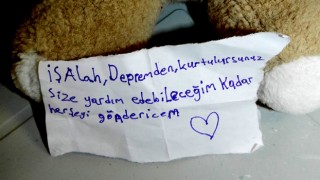 İŞAlah, Depremden, kurtulursunuz
size yardım edebiLeceğim Kadar
herşeyi gönDericem